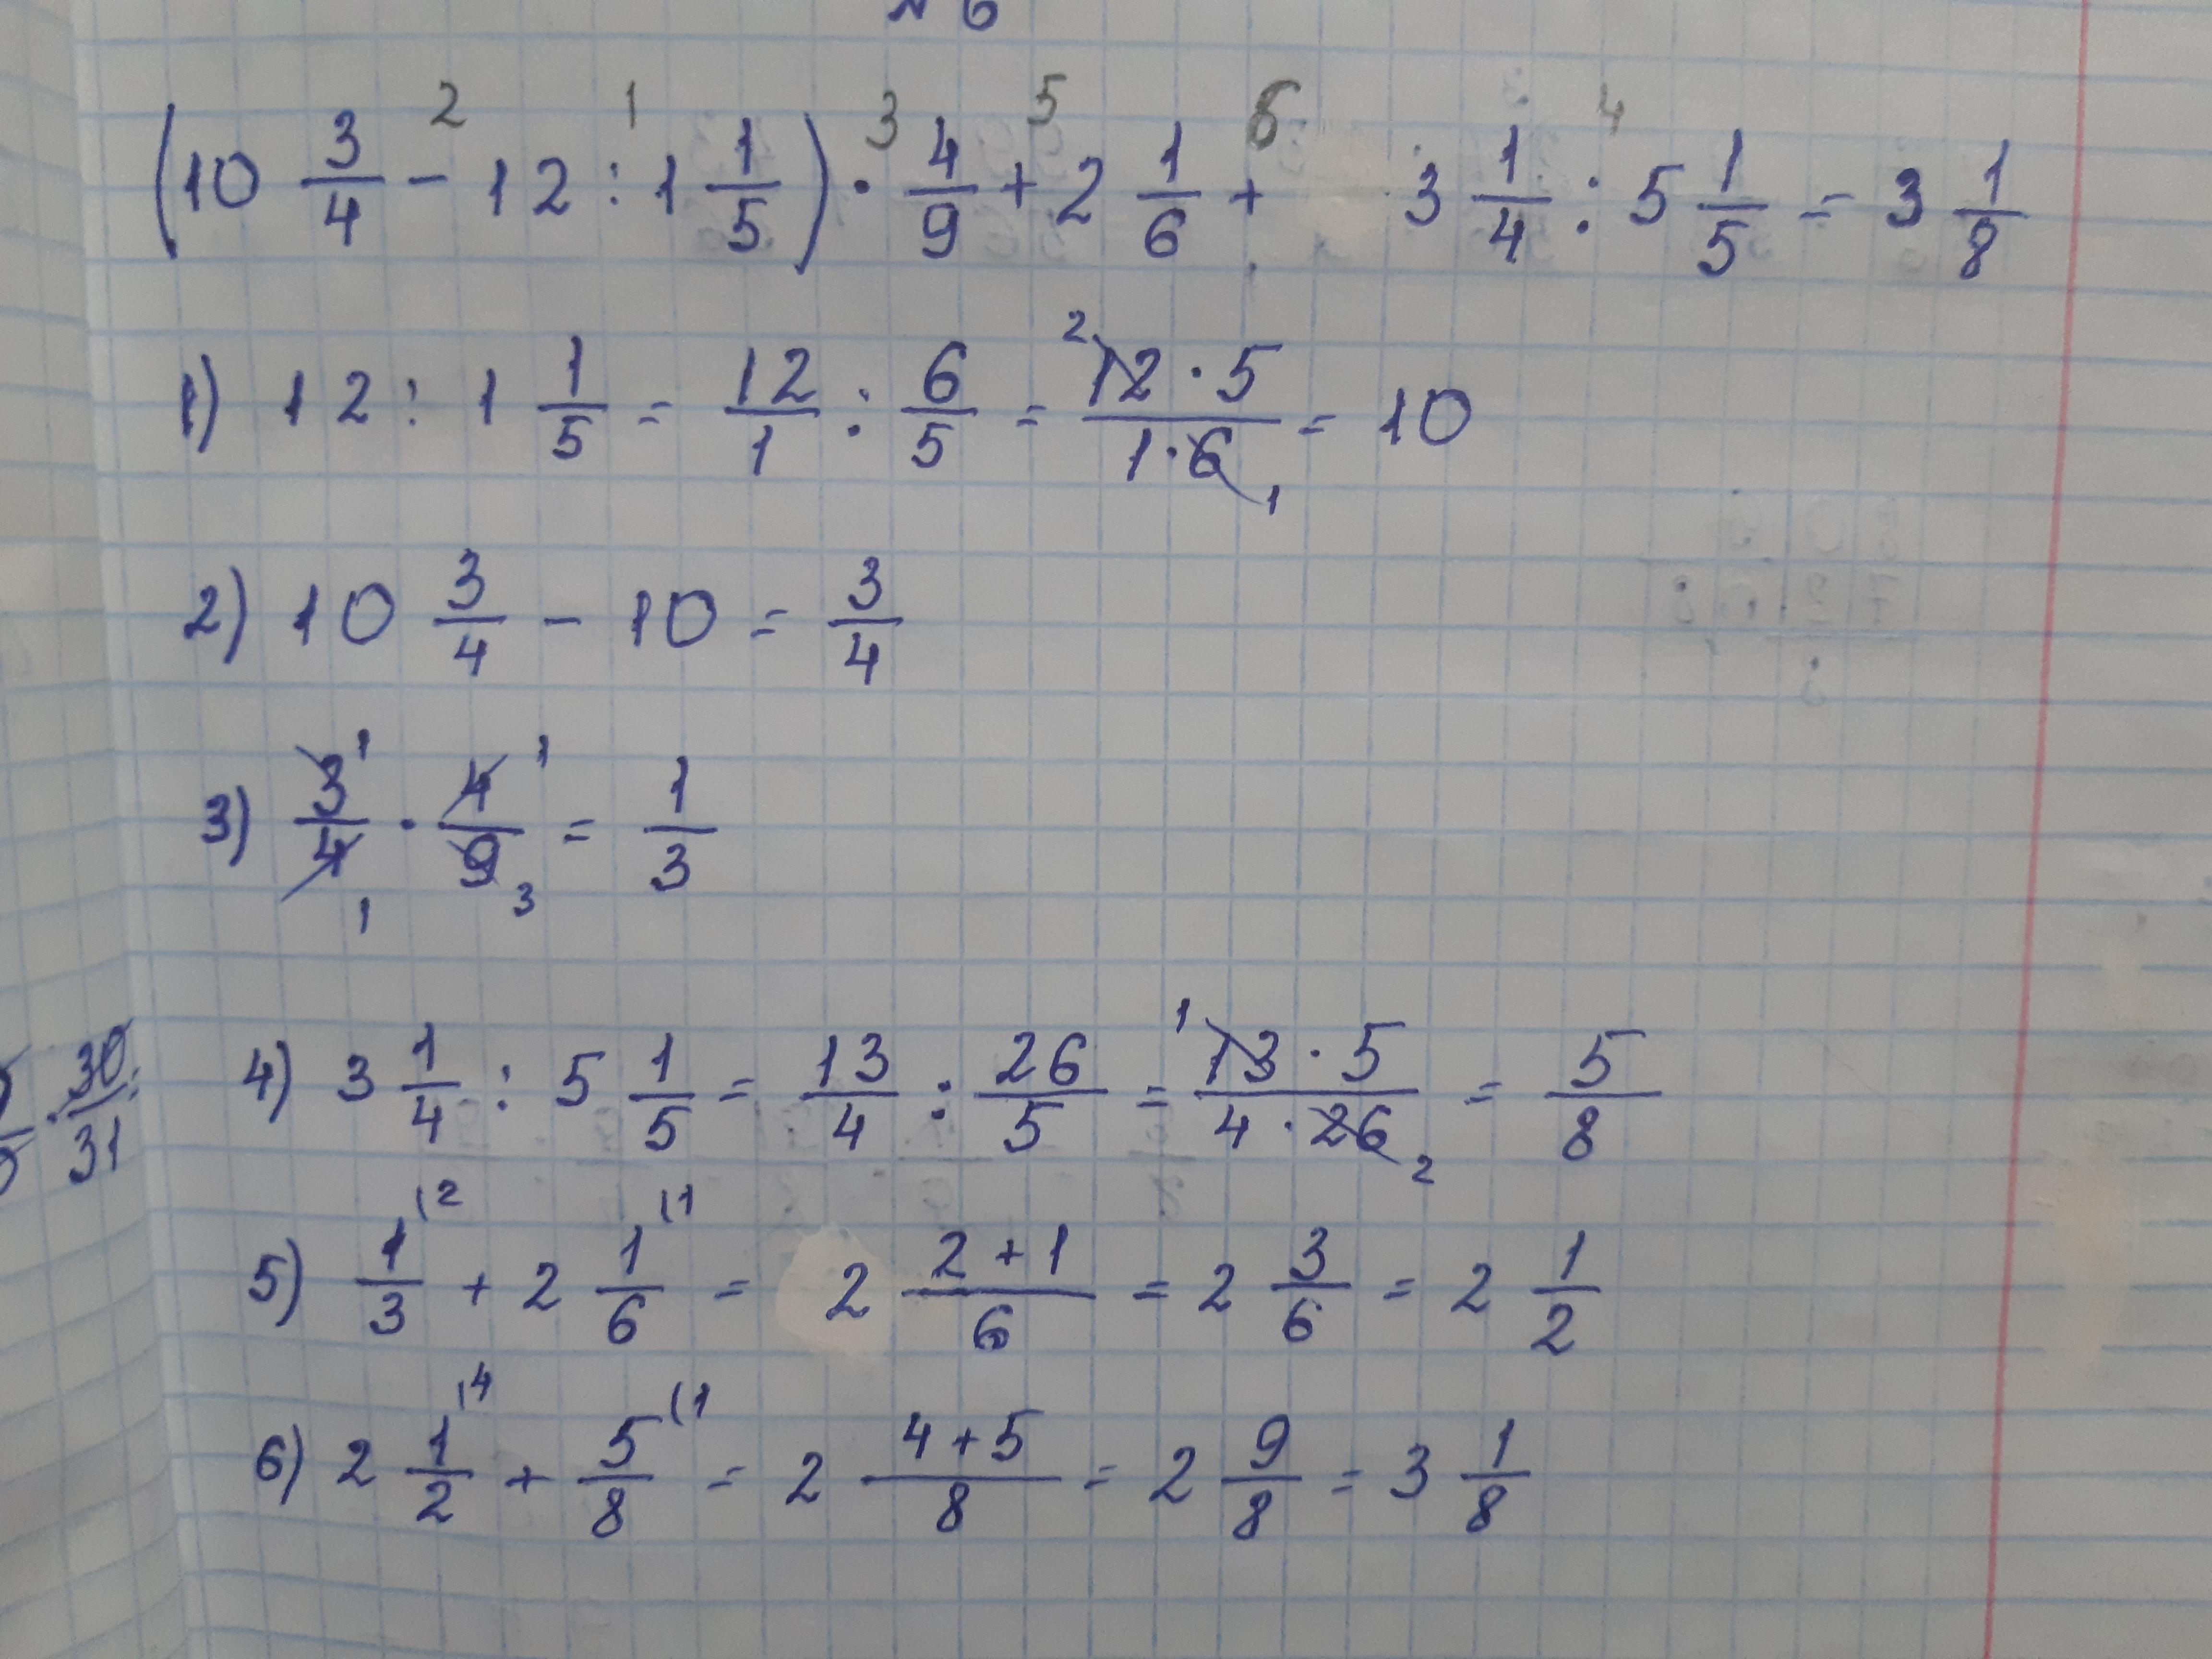 (10 3/4 - 12 : 1 1/5) · 4/9 + 2 1/6 + 3 1/4 : 5 1/5 = 3 1/8
1) 12 : 1 1/5 = 12/1 : 6/5 = 12·5/1·6 = 10
2) 10 3/4 - 10 = 3/4
3) 3/4 · 4/9 = 1/3
4) 3 1/4 : 5 1/5 = 13/4 : 26/5 = 13·5/4·26 = 5/8
5) 1/3 + 2 1/6 = 2 2+1/6 = 2 3/6 = 2 1/2
6) 2 1/2 + 5/8 = 2 4+5/8 = 2 9/8 = 3 1/8
30/31